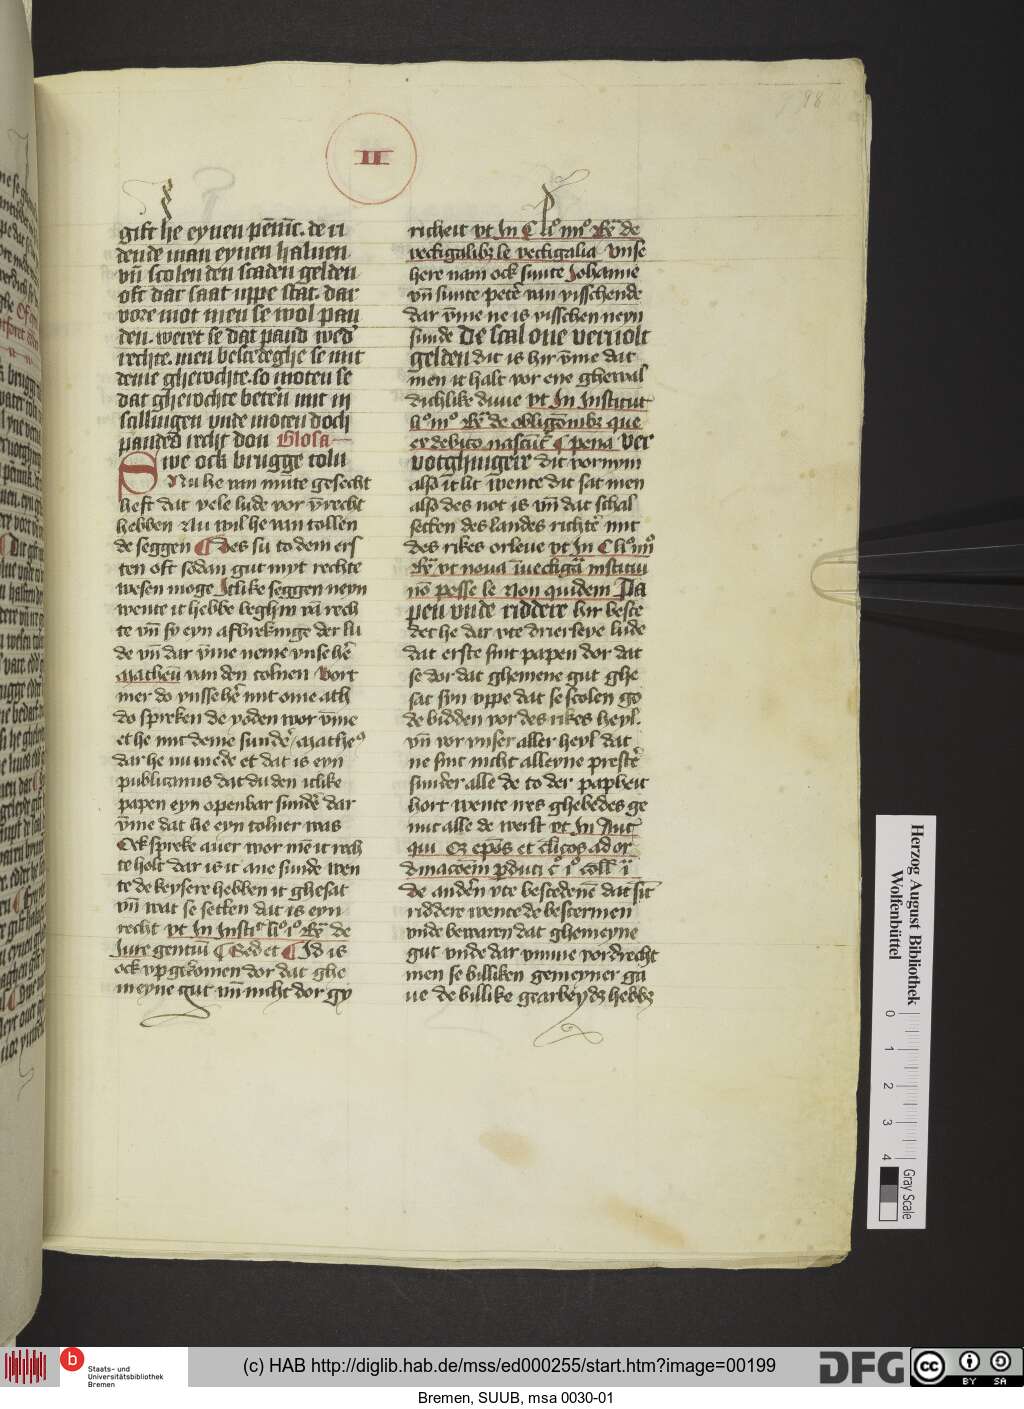 II
98
gift he eynen pēnīc. de ri
dende man eynen haluen
vn̄ scolen den scaden gelden
oft dar saat vppe stat. dar
vore mot men se wol pan
den. weret se dat pand wed̓
rechte. men bescedeghe se mit
deme gherochte. so moten se
dat gherochte beter̄ mit iij
scillingen vnde moten doch
panded recht don Glosa
Swe ock brugge toln
Nu he van mute gesecht
heft dat vele lude vor vnrecht
hebben Nu wil he van tollen
de seggen ¶ Des su to dem ers
ten oft sodan gut myt rechte
wesen moge Itlike seggen neyn
wente it hebbe beghin vā rech
te vn̄ sy eyn afbrekinge der lu
de vn̄ dar v̄me neme vnse hē
matheū van den tolnen Vort
mer do vnsse hē mit ome ath
do spreken de yoden wor v̄me
et he mit deme sunder̄ Matheꝰ
dar he mi mede et dat is eyn
publicanus dat duden itlike
papen eyn openbar sunder̄ dar
v̄me dat he eyn tolner was
Ock spreke auer wor mē it rech
te holt dar is it ane sunde wen
te de keysere hebben it ghesat
vn̄ wat se setten dat is eyn
recht vt In Insti͛ li° i° Rͬ de
Iure gentiū ¶ Sed et ¶ Id is
ock vpgekomen dor dat ghe
meyne gut vn̄ nicht dor gy
richeit vt In C li° iiii° Rͬ de
vectigalibꝫ le vectigalia vnse
here nam ock sunte Johanne
vn̄ sunte peter̄ van visschende
dar v̄me ne is visschen neyn
sunde De scal one vervolt
gelden dit is hir v̄me dat
men it halt vor ene ghewal
dichlike duue vt In Institut
li° iii° Rͬ de obligōnibꝫ que
ex debito nascūt̄ ¶ pena Ver
votghingere dit vornym
also it lit wente dit sat men
also des not is vn̄ dat schal
setten des landes richter̄ mit
des rikes orleue vt In C li° iiii°
Rͬ vt noua īuectigā institui
nō posse le Non quidem Pa
pen vnde riddere hir besce
det he dar vte drierleye lude
dat erste sint papen dor dat
se dor dat ghemene gut ghe
sat syn vppe dat se scolen go
de bidden vor des rikes heyl.
vn̄ vor vnser aller heyl dat
ne sint nicht alleyne prester̄
sunder alle de to der papheit
hort wente nes ghebedes ge
nut alle de werlt vt In Aut̄
qūo oꝫ epōs et clīcos ad or
dinacōem pduci c° i° coll̄ i̇
de ander̄n vte bescedenē dat sīt
riddere wente de bescermen
vnde bewaren dat ghemeyne
gut vnde dar vmme vordrecht
men se billiken gemeyner ga
ue de billike gearbeydꝫ hebbꝫ
Herzog August Bibliothek
Wolfenbüttel
0 1 2 3 4
Gray Scale
Staats- und
Universitätsbibliothek
Bremen
(c) HAB http://diglib.hab.de/mss/ed000255/start.htm?image=00199
DFG
cc BY SA
Bremen, SUUB, msa 0030-01